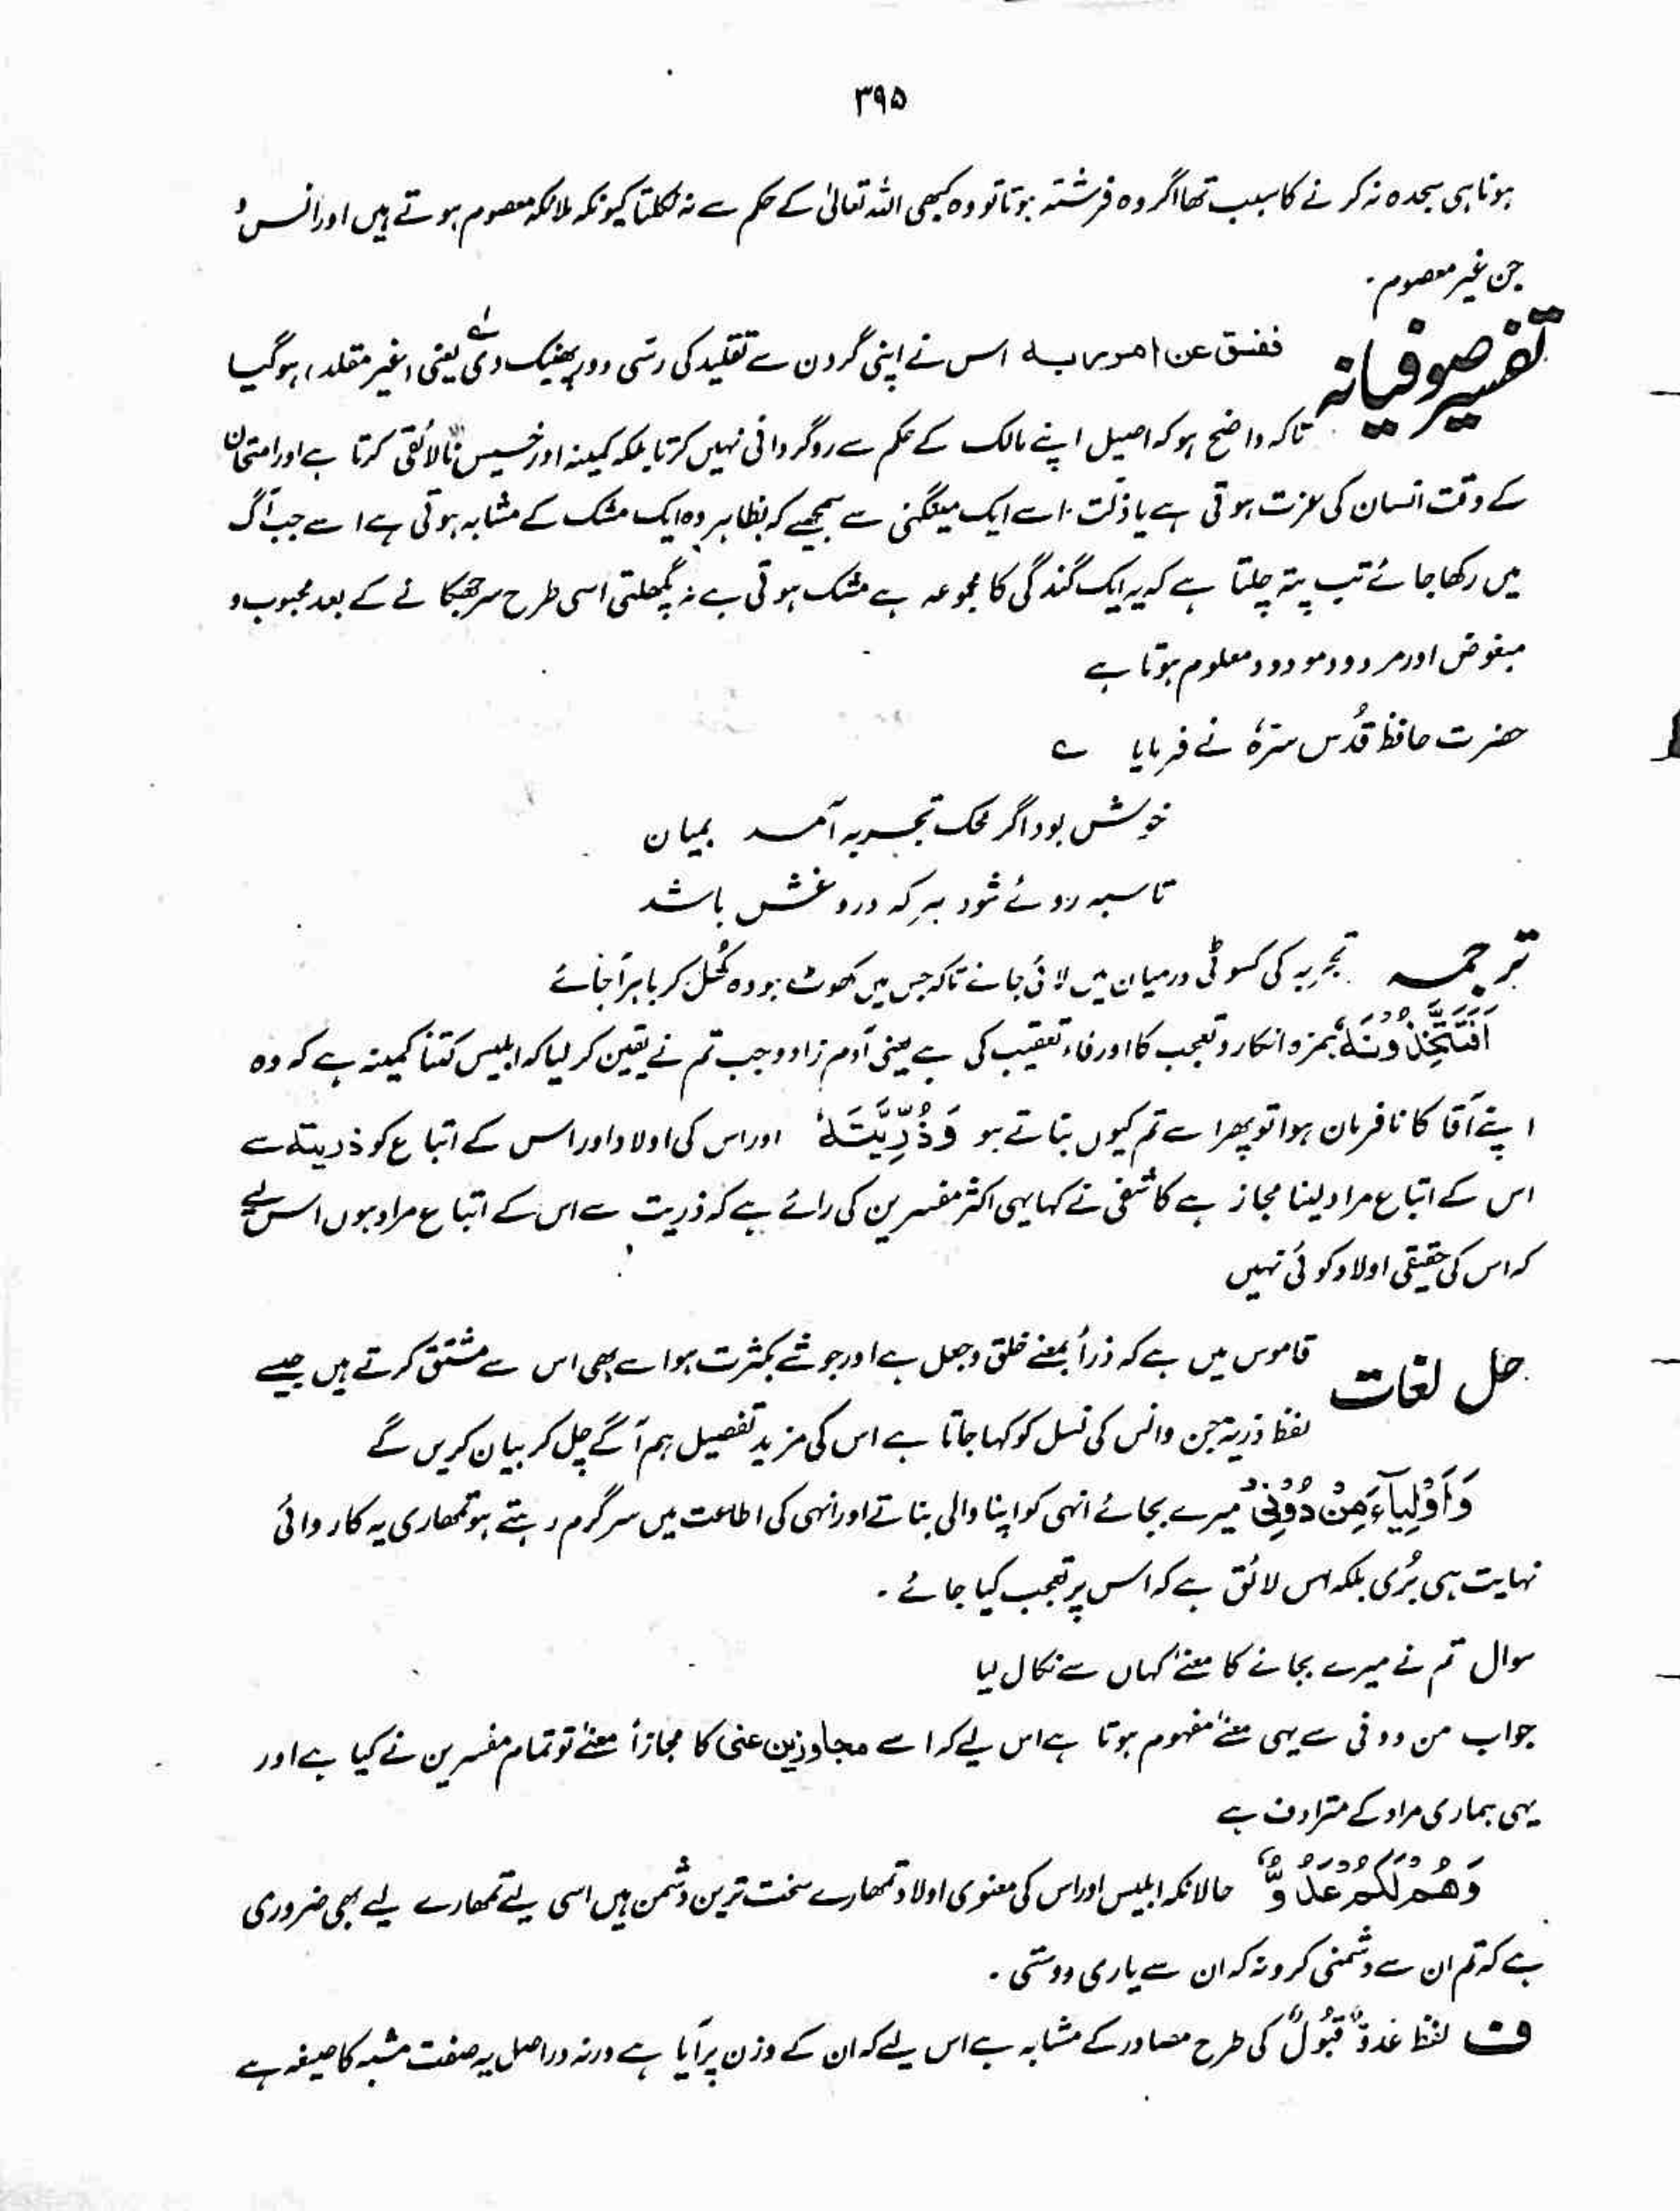 ۳۹۵
ہونا ہی سجدہ نہ کرنے کا سبب تھا اگر وہ فرشتہ ہوتا تو وہ کبھی اللہ تعالیٰ کے حکم سے نہ نکلتا کیونکہ ملائکہ معصوم ہوتے ہیں اور انس و
جن غیر معصوم۔
تفسیر صوفیانہ ففسق عن امر ربہ اس نے اپنی گردن سے تقلید کی رسی دور پھینک دی یعنی (غیر مقلد) ہو گیا
تاکہ واضح ہو کہ اصیل اپنے مالک کے حکم سے روگردانی نہیں کرتا بلکہ کمینہ اور خسیس نالائقی کرتا ہے اور امتحان
کے وقت انسان کی عزت ہوتی ہے یا ذلت۔ اسے ایک مینگنی سے سمجھیے کہ بظاہر وہ ایک مشک کے مشابہ ہوتی ہے اسے جب آگ
میں رکھا جائے تب پتہ چلتا ہے کہ یہ ایک گندگی کا مجموعہ ہے مشک ہوتی ہے نہ پگھلتی اسی طرح سر جھکانے کے بعد محبوب و
مبغوض اور مردود مودود معلوم ہوتا ہے
حضرت حافظ قُدس سرّہٗ نے فرمایا ؎
خوش بود اگر محک تجربہ آمد بمیان
تا سیہ روئے شود ہرکہ دروغش باشد
ترجمہ تجربہ کی کسوٹی درمیان میں لائی جائے تاکہ جس میں کھوٹ ہو وہ کُھل کر باہر آ جائے
اَفَتَتَّخِذُوْنَہٗ ہمزہ انکار و تعجب کا اور فاء تعقیب کی ہے یعنی آدم زادو جب تم نے یقین کر لیا کہ ابلیس کتنا کمینہ ہے کہ وہ
اپنے آقا کا نافرمان ہوا تو پھر اسے تم کیوں بناتے ہو وَذُرِّیَّتَہٗ اور اس کی اولاد اور اس کے اتباع کو ذریتہ سے
اس کے اتباع مراد لینا مجاز ہے کاشفی نے کہا یہی اکثر مفسرین کی رائے ہے کہ ذریت سے اس کے اتباع مراد ہوں اس لیے
کہ اس کی حقیقی اولاد کوئی نہیں
حل لغات قاموس میں ہے کہ ذرأ بمعنے خلق وجعل ہے اور جو شے بکثرت ہو اسے بھی اس سے مشتق کرتے ہیں جیسے
لفظ ذریۃ جن وانس کی نسل کو کہا جاتا ہے اس کی مزید تفصیل ہم آگے چل کر بیان کریں گے
وَاَوْلِیَآءَ مِنْ دُوْنِیْ میرے بجائے انہی کو اپنا والی بناتے اور انہی کی اطاعت میں سرگرم رہتے ہو تمھاری یہ کاروائی
نہایت ہی بُری بلکہ اس لائق ہے کہ اس پر تعجب کیا جائے۔
سوال تم نے میرے بجائے کا معنےٰ کہاں سے نکال لیا
جواب من دونی سے یہی معنےٰ مفہوم ہوتا ہے اس لیے کہ اسے مجاوزین عنی کا مجازاً معنےٰ تو تمام مفسرین نے کیا ہے اور
یہی ہماری مراد کے مترادف ہے
وَھُمْ لَکُمْ عَدُوٌّ حالانکہ ابلیس اور اس کی معنوی اولاد تمھارے سخت ترین دشمن ہیں اسی لیے تمھارے لیے بھی ضروری
ہے کہ تم ان سے دشمنی کرو نہ کہ ان سے یاری دوستی۔
ف لفظ عدوّ قَبُولٌ کی طرح مصادر کے مشابہ ہے اس لیے کہ ان کے وزن پر آیا ہے ورنہ دراصل یہ صفت مشبہ کا صیغہ ہے